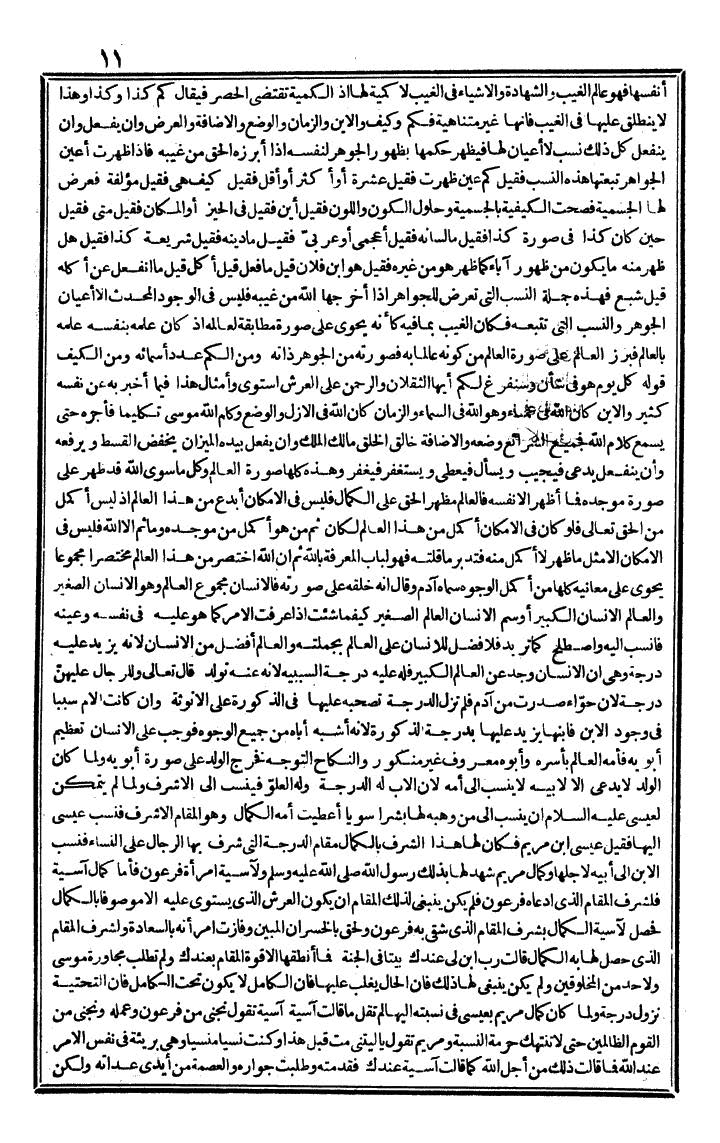 ١١
أنفسها فهو عالم الغيب والشهادة والاشياء فى الغيب لا كمية لها اذ الكمية تقتضى الحصر فيقال كم كذا وكذا وهذا
لا ينطلق عليها فى الغيب فانها غير متناهية فكم وكيف والاين والزمان والوضع والاضافة والعرض وان يفعل وان
ينفعل كل ذلك نسب لا أعيان لها فيظهر حكمها بظهور الجوهر لنفسه اذا أبرزه الحق من غيبه فاذا ظهرت أعين
الجواهر تبعتها هذه النسب فقيل كم عين ظهرت فقيل عشرة أو أكثر أو أقل فقيل كيف هى فقيل مؤلفة فعرض
لها الجسمية فصحت الكيفية بالجسمية وحلول الكون واللون فقيل أين فقيل فى الحيز أو المكان فقيل متى فقيل
حين كان كذا فى صورة كذا فقيل ما لسانه فقيل أعجمى أو عربىّ فقيل ما دينه فقيل شريعة كذا فقيل هل
ظهر منه ما يكون من ظهور آباء كما ظهر هو من غيره فقيل هو ابن فلان قيل ما فعل قيل أكل قيل ما انفعل عن أكله
قيل شبع فهذه جملة النسب التى تعرض للجواهر اذا أخرجها الله من غيبه فليس فى الوجود المحدث الا أعيان
الجوهر والنسب التى تتبعه فكان الغيب بما فيه كأنه يحوى على صورة مطابقة لعالمه اذ كان علمه بنفسه علمه
بالعالم فبرز العالم على صورة العالم من كونه عالما به فصورته من الجوهر ذاته ومن الكم عدد أسمائه ومن الكيف
قوله كل يوم هو فى شأن وسنفرغ لكم أيها الثقلان والرحمن على العرش استوى وأمثال هذا فيما أخبر به عن نفسه
كثير والاين كان الله فى عماء وهو الله فى السماء والزمان كان الله فى الازل والوضع وكلم الله موسى تكليما فأجره حتى
يسمع كلام الله فجميع الشرائع وضعه والاضافة خالق الخلق مالك الملك وان يفعل بيده الميزان يخفض القسط ويرفعه
وأن ينفعل يدعى فيجيب ويسأل فيعطى ويستغفر فيغفر وهذه كلها صورة العالم وكل ما سوى الله قد ظهر على
صورة موجده فما أظهر الا نفسه فالعالم مظهر الحق على الكمال فليس فى الامكان أبدع من هذا العالم اذ ليس أكمل
من الحق تعالى فلو كان فى الامكان أكمل من هذا العالم لكان ثم من هو أكمل من موجده وما ثم الا الله فليس فى
الامكان الامثل ما ظهر لا أكمل منه فتدبر ما قلته فهو لباب المعرفة بالله ثم ان الله اختصر من هذا العالم مختصرا مجموعا
يحوى على معانيه كلها من أكمل الوجوه سماه آدم وقال انه خلقه على صورته فالانسان مجموع العالم وهو الانسان الصغير
والعالم الانسان الكبير أو سم الانسان العالم الصغير كيفما شئت اذا عرفت الامر كما هو عليه فى نفسه وعينه
فانسب اليه واصطلح كما تريد فلا فضل للانسان على العالم بجملته والعالم أفضل من الانسان لانه يزيد عليه
درجة وهى ان الانسان وجد عن العالم الكبير فله عليه درجة السببية لانه عنه تولد قال تعالى وللرجال عليهنّ
درجة لان حوّاء صدرت من آدم فلم تزل الدرجة تصحبه عليها فى الذكورة على الانوثة وان كانت الام سببا
فى وجود الابن فابنها يزيد عليها بدرجة الذكورة لانه أشبه أباه من جميع الوجوه فوجب على الانسان تعظيم
أبويه فأمه العالم بأسره وأبوه معروف غير منكور والنكاح التوجه فخرج الولد على صورة أبويه ولما كان
الولد لا يدعى الا لابيه لا ينسب الى أمه لان الاب له الدرجة وله العلوّ فينسب الى الاشرف ولما لم يتمكن
لعيسى عليه السلام ان ينسب الى من وهبه لها بشرا سويا أعطيت أمه الكمال وهو المقام الاشرف فنسب عيسى
اليها فقيل عيسى ابن مريم فكان لها هذا الشرف بالكمال مقام الدرجة التى شرف بها الرجال على النساء فنسب
الابن الى أبيه لاجلها وكمال مريم شهد لها بذلك رسول الله صلى الله عليه وسلم ولآسية امرأة فرعون فأما كمال آسية
فلشرف المقام الذى ادعاه فرعون فلم يكن ينبغى لذلك المقام ان يكون العرش الذى يستوى عليه الا موصوفا بالكمال
فحصل لآسية الكمال بشرف المقام الذى شقى به فرعون ولحق بالخسران المبين وفازت امرأته بالسعادة ولشرف المقام
الذى حصل لها به الكمال قالت رب ابن لى عندك بيتا فى الجنة فما أنطقها الا قوة المقام بعندك ولم تطلب مجاورة موسى
ولا أحد من المخلوقين ولم يكن ينبغى لها ذلك فان الحال يغلب عليها فان الكامل لا يكون تحت الكامل فان التحتية
نزول درجة ولما كان كمال مريم بعيسى فى نسبته اليها لم تقل ما قالت آسية آسية تقول نجنى من فرعون وعمله ونجنى من
القوم الظالمين حتى لا تنتهك حرمة النسبة ومريم تقول يا ليتنى مت قبل هذا وكنت نسيا منسيا وهى بريئة فى نفس الامر
عند الله فما قالت ذلك من أجل الله كما قالت آسية عندك فقدمته وطلبت جواره والعصمة من أيدى عداته ولكن